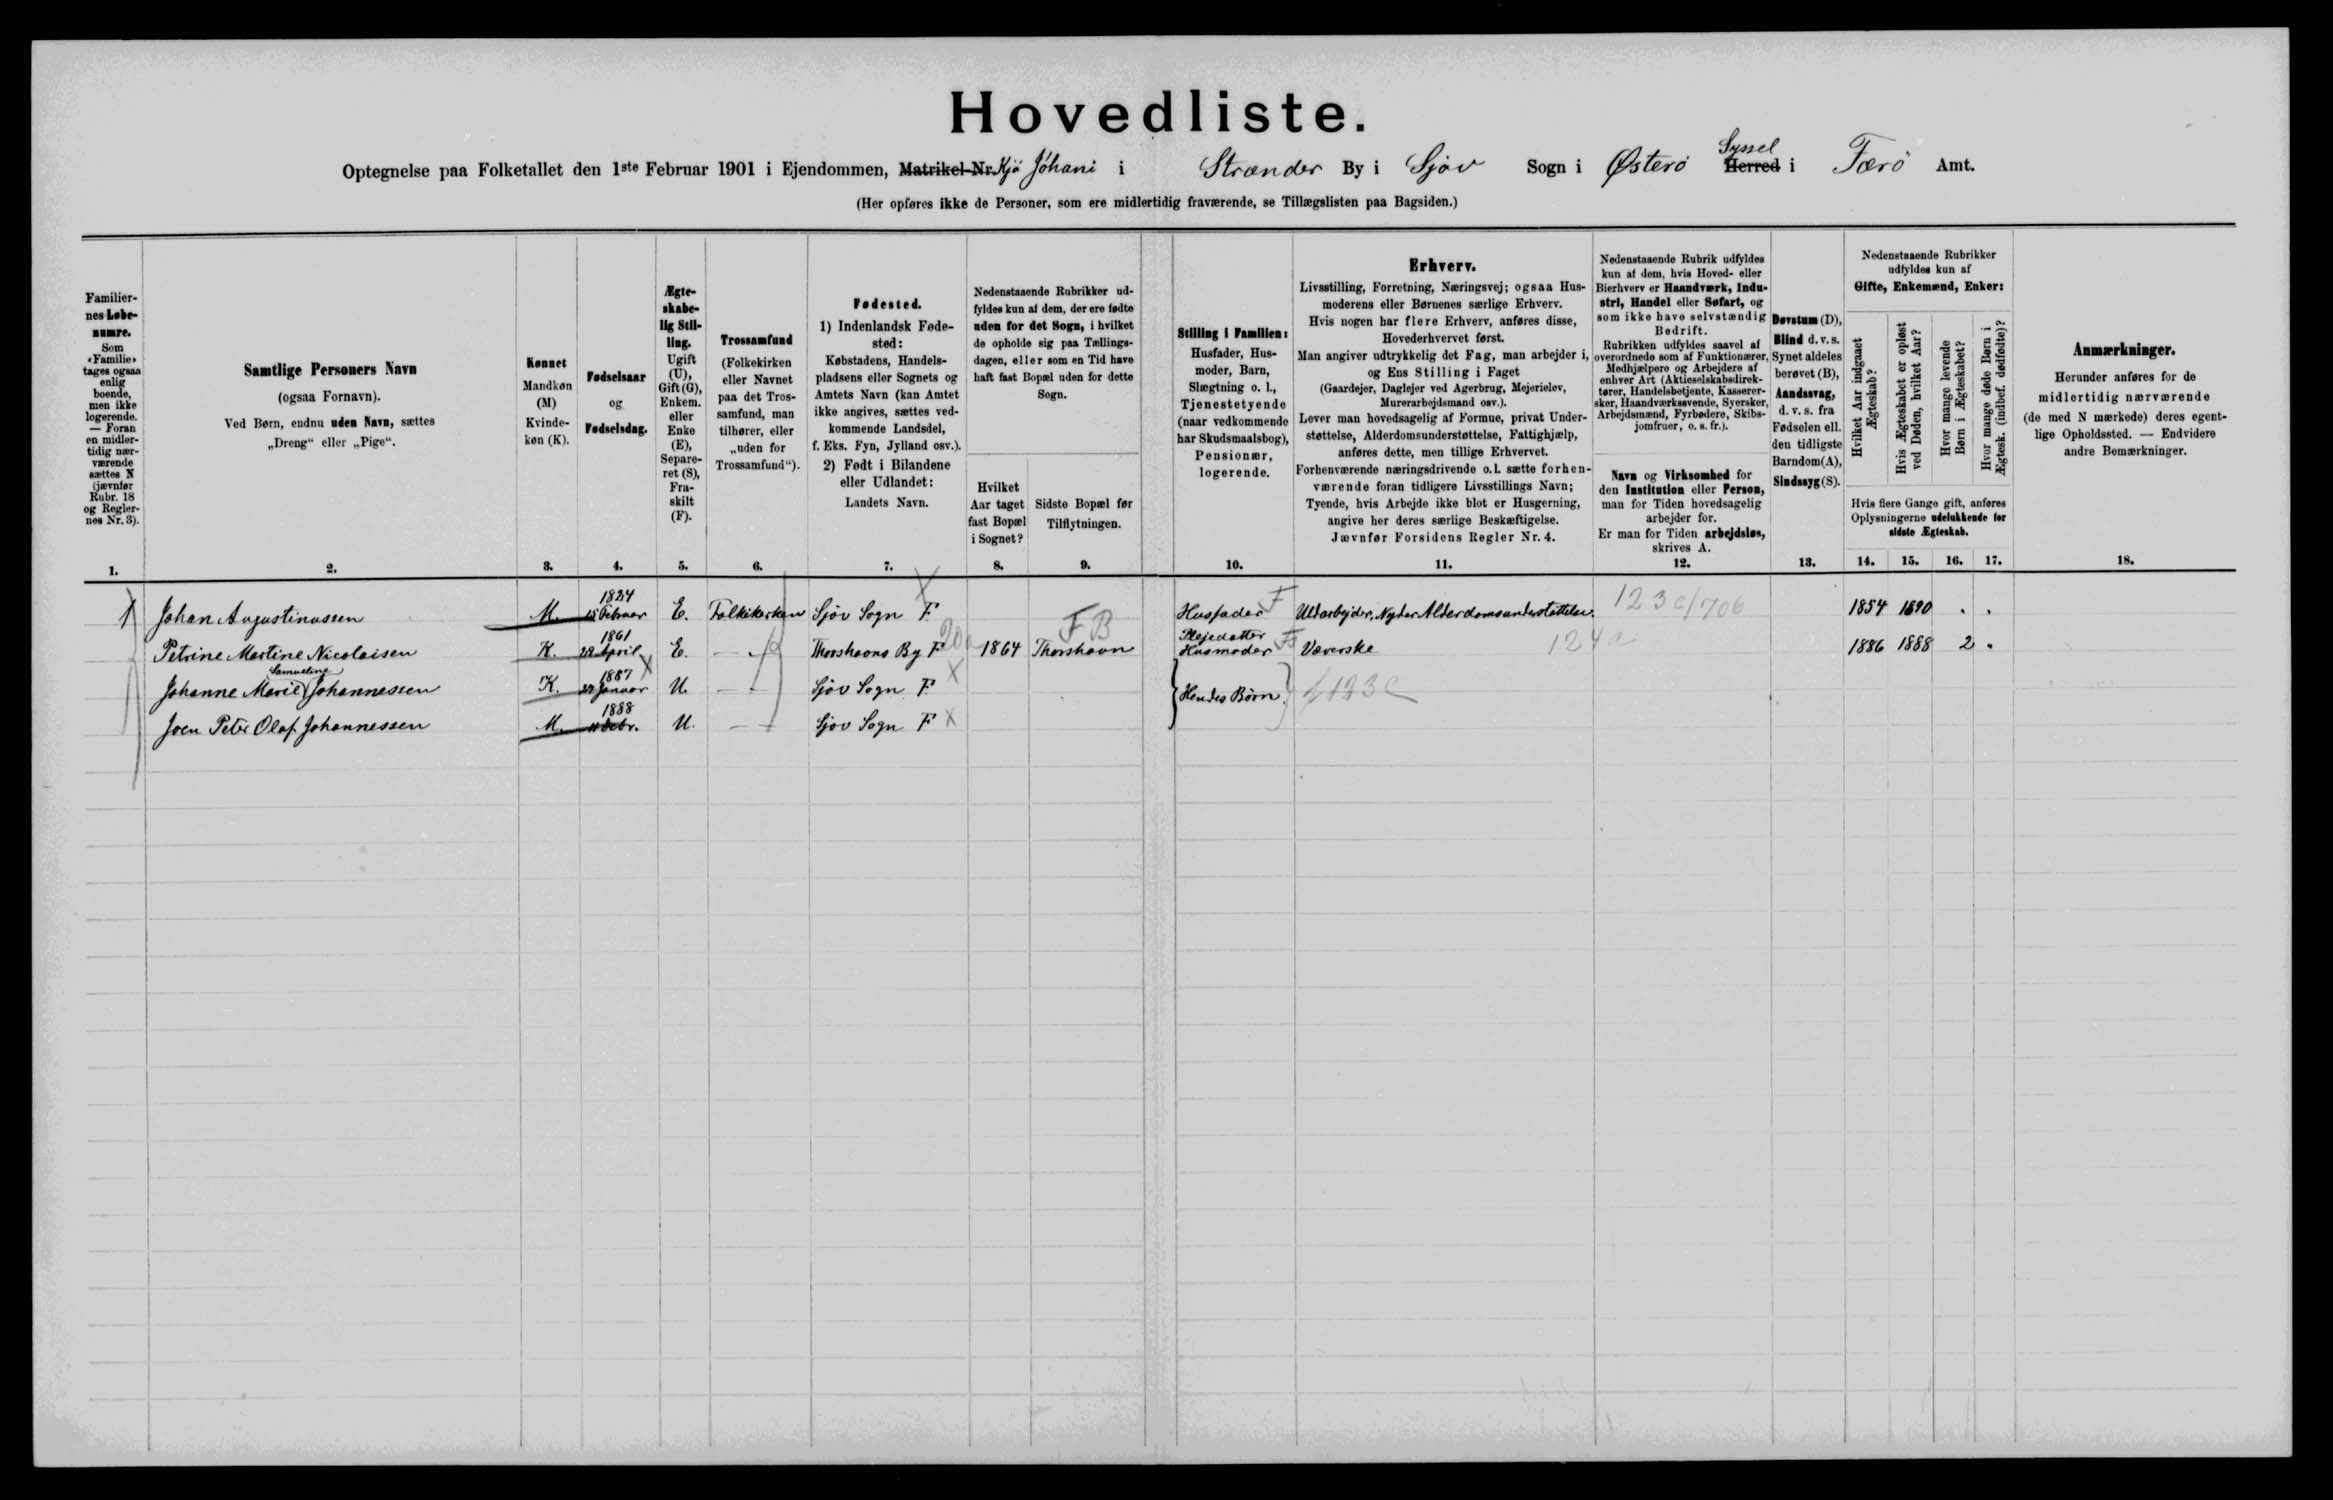 Hovedliste.
Optegnelse paa Folketallet den 1ste Februar 1901 i Ejendommen, Matrikel-Nr. Kjö Jóhani i Strænder By i Sjóv Sogn i Österö Herred Syssel i Færö Amt.
(Her opføres ikke de Personer, som ere midlertidig fraværende, se Tillægslisten paa Bagsiden.)
Familier-
nes Løbe-
numre.
Som
«Familie»
tages ogsaa
enlig
boende,
men ikke
logerende.
— Foran
en midler-
tidig nær-
værende
sættes N
(jævnfør
Rubr. 18
og Regler-
nes Nr. 3).
1.
Samtlige Personers Navn
(ogsaa Fornavn).
Ved Børn, endnu uden Navn, sættes
„Dreng“ eller „Pige“.
2.
Kønnet
Mandkøn
(M)
Kvinde-
køn (K).
3.
Fødselsaar
og
Fødselsdag.
4.
Ægte-
skabe-
lig Stil-
ling.
Ugift
(U),
Gift (G),
Enkem.
eller
Enke
(E),
Separe-
ret (S),
Fra-
skilt
(F).
5.
Trossamfund
(Folkekirken
eller Navnet
paa det Tros-
samfund, man
tilhører, eller
„uden for
Trossamfund“).
6.
Fødested.
1) Indenlandsk Føde-
sted:
Købstadens, Handels-
pladsens eller Sognets og
Amtets Navn (kan Amtet
ikke angives, sættes ved-
kommende Landsdel,
f. Eks. Fyn, Jylland osv.).
2) Født i Bilandene
eller Udlandet:
Landets Navn.
7.
Nedenstaaende Rubrikker ud-
fyldes kun af dem, der ere fødte
uden for det Sogn, i hvilket
de opholde sig paa Tællings-
dagen, eller som en Tid have
haft fast Bopæl uden for dette
Sogn.
Hvilket
Aar taget
fast Bopæl
i Sognet?
8.
Sidste Bopæl før
Tilflytningen.
9.
Stilling i Familien:
Husfader, Hus-
moder, Barn,
Slægtning o. l.,
Tjenestetyende
(naar vedkommende
har Skudsmaalsbog),
Pensionær,
logerende.
10.
Erhverv.
Livsstilling, Forretning, Næringsvej; ogsaa Hus-
moderens eller Børnenes særlige Erhverv.
Hvis nogen har flere Erhverv, anføres disse,
Hovederhvervet først.
Man angiver udtrykkelig det Fag, man arbejder i,
og Ens Stilling i Faget
(Gaardejer, Daglejer ved Agerbrug, Mejerielev,
Murerarbejdsmand osv.).
Lever man hovedsagelig af Formue, privat Under-
støttelse, Alderdomsunderstøttelse, Fattighjælp,
anføres dette, men tillige Erhvervet.
Forhenværende næringsdrivende o. l. sætte forhen-
værende foran tidligere Livsstillings Navn;
Tyende, hvis Arbejde ikke blot er Husgerning,
angive her deres særlige Beskæftigelse.
Jævnfør Forsidens Regler Nr. 4.
11.
Nedenstaaende Rubrik udfyldes
kun af dem, hvis Hoved- eller
Bierhverv er Haandværk, Indu-
stri, Handel eller Søfart, og
som ikke have selvstændig
Bedrift.
Rubrikken udfyldes saavel af
overordnede som af Funktionærer,
Medhjælpere og Arbejdere af
enhver Art (Aktieselskabsdirek-
tører, Handelsbetjente, Kasserer-
sker, Haandværkssvende, Syersker,
Arbejdsmænd, Fyrbødere, Skibs-
jomfruer, o. s. fr.).
Navn og Virksomhed for
den Institution eller Person,
man for Tiden hovedsagelig
arbejder for.
Er man for Tiden arbejdsløs,
skrives A.
12.
Døvstum (D),
Blind d. v. s.
Synet aldeles
berøvet (B),
Aandssvag,
d. v. s. fra
Fødselen ell.
den tidligste
Barndom (A),
Sindssyg (S).
13.
Nedenstaaende Rubrikker
udfyldes kun af
Gifte, Enkemænd, Enker:
Hvilket Aar indgaaet
Ægteskab?
Hvis Ægteskabet er opløst
ved Døden, hvilket Aar?
Hvor mange levende
Børn i Ægteskabet?
Hvor mange døde Børn i
Ægtesk. (indbef. dødfødte)?
Hvis flere Gange gift, anføres
Oplysningerne udelukkende for
sidste Ægteskab.
14. 15. 16. 17.
Anmærkninger.
Herunder anføres for de
midlertidig nærværende
(de med N mærkede) deres egent-
lige Opholdssted. — Endvidere
andre Bemærkninger.
18.
1 Johan Augustinussen M. 1824 15 Februar E. Folkekirken Sjóv Sogn F. Husfader F Uldarbejder, Nyder Alderdomsunderstøttelse. 123 c/706 1854 1890 . .
Petrine Martine Nicolaisen K. 1861 28 April E. — Thorshavns By F 1864 Thorshavn FB Plejedatter Husmoder Væverske 124 a 1886 1888 2 .
Johanne Marie Samueline Johannessen K. 1887 27 Januar U. — Sjóv Sogn F. X Hendes Børn. 123 c
Joen Peter Olaf Johannessen M. 1888 U. — Sjóv Sogn F X